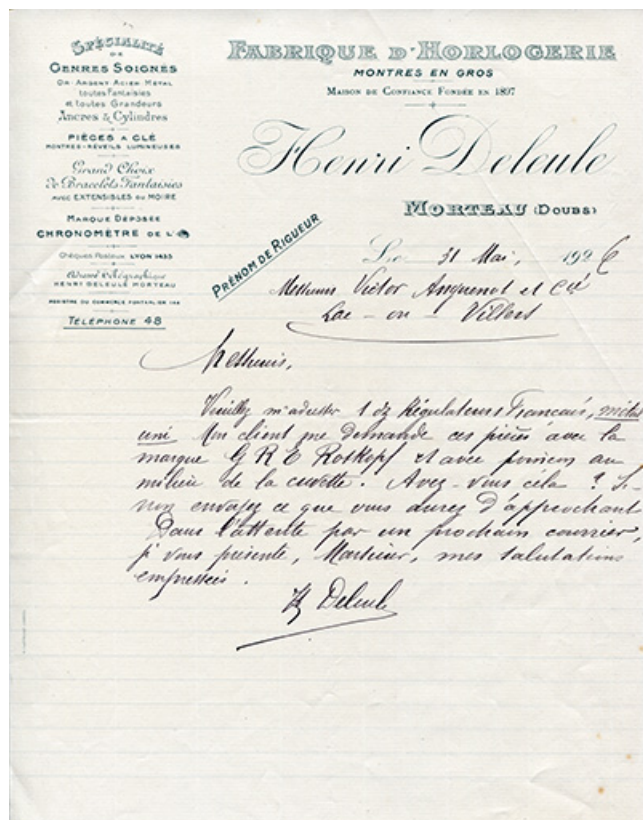 SPÉCIALITÉ
DE
GENRES SOIGNÉS
OR ARGENT ACIER MÉTAL
toutes Fantaisies
et toutes Grandeurs
Ancres & Cylindres
PIÈCES A CLÉ
MONTRES-RÉVEILS LUMINEUSES
Grand Choix
de Bracelets Fantaisies
AVEC EXTENSIBLES OU MOIRE
MARQUE DÉPOSÉE
CHRONOMÈTRE DE L'
Chèques Postaux LYON 1433
Adresse Télégraphique
HENRI DELEULE MORTEAU
REGISTRE DU COMMERCE PONTARLIER
TÉLÉPHONE 48
FABRIQUE D'HORLOGERIE
MONTRES EN GROS
MAISON DE CONFIANCE FONDÉE EN 1897
Henri Deleule
MORTEAU (DOUBS)
PRÉNOM DE RIGUEUR
Le 31 Mai, 1926
Messieurs Victor Anguenot et Cie
Lac - ou - Villers
Messieurs,
Veuillez m'adresser 1 dz Régulateurs Français, métal
uni Mon client me demande ces pièces avec la
marque G R E Roskopf et avec poinçon au
milieu de la cuvette. Avez-vous cela ? Si-
non envoyez ce que vous aurez d'approchant
Dans l'attente par un prochain courrier,
je vous présente, Monsieur, mes salutations
empressées.
H Deleule